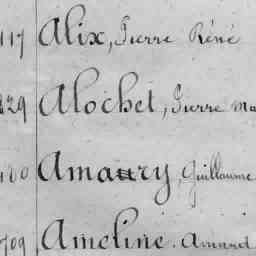 117 Alix, Pierre Réné
829 Alochet, Pierre Ma
100 Amaury, Guillaume
709 Ameline. Amand